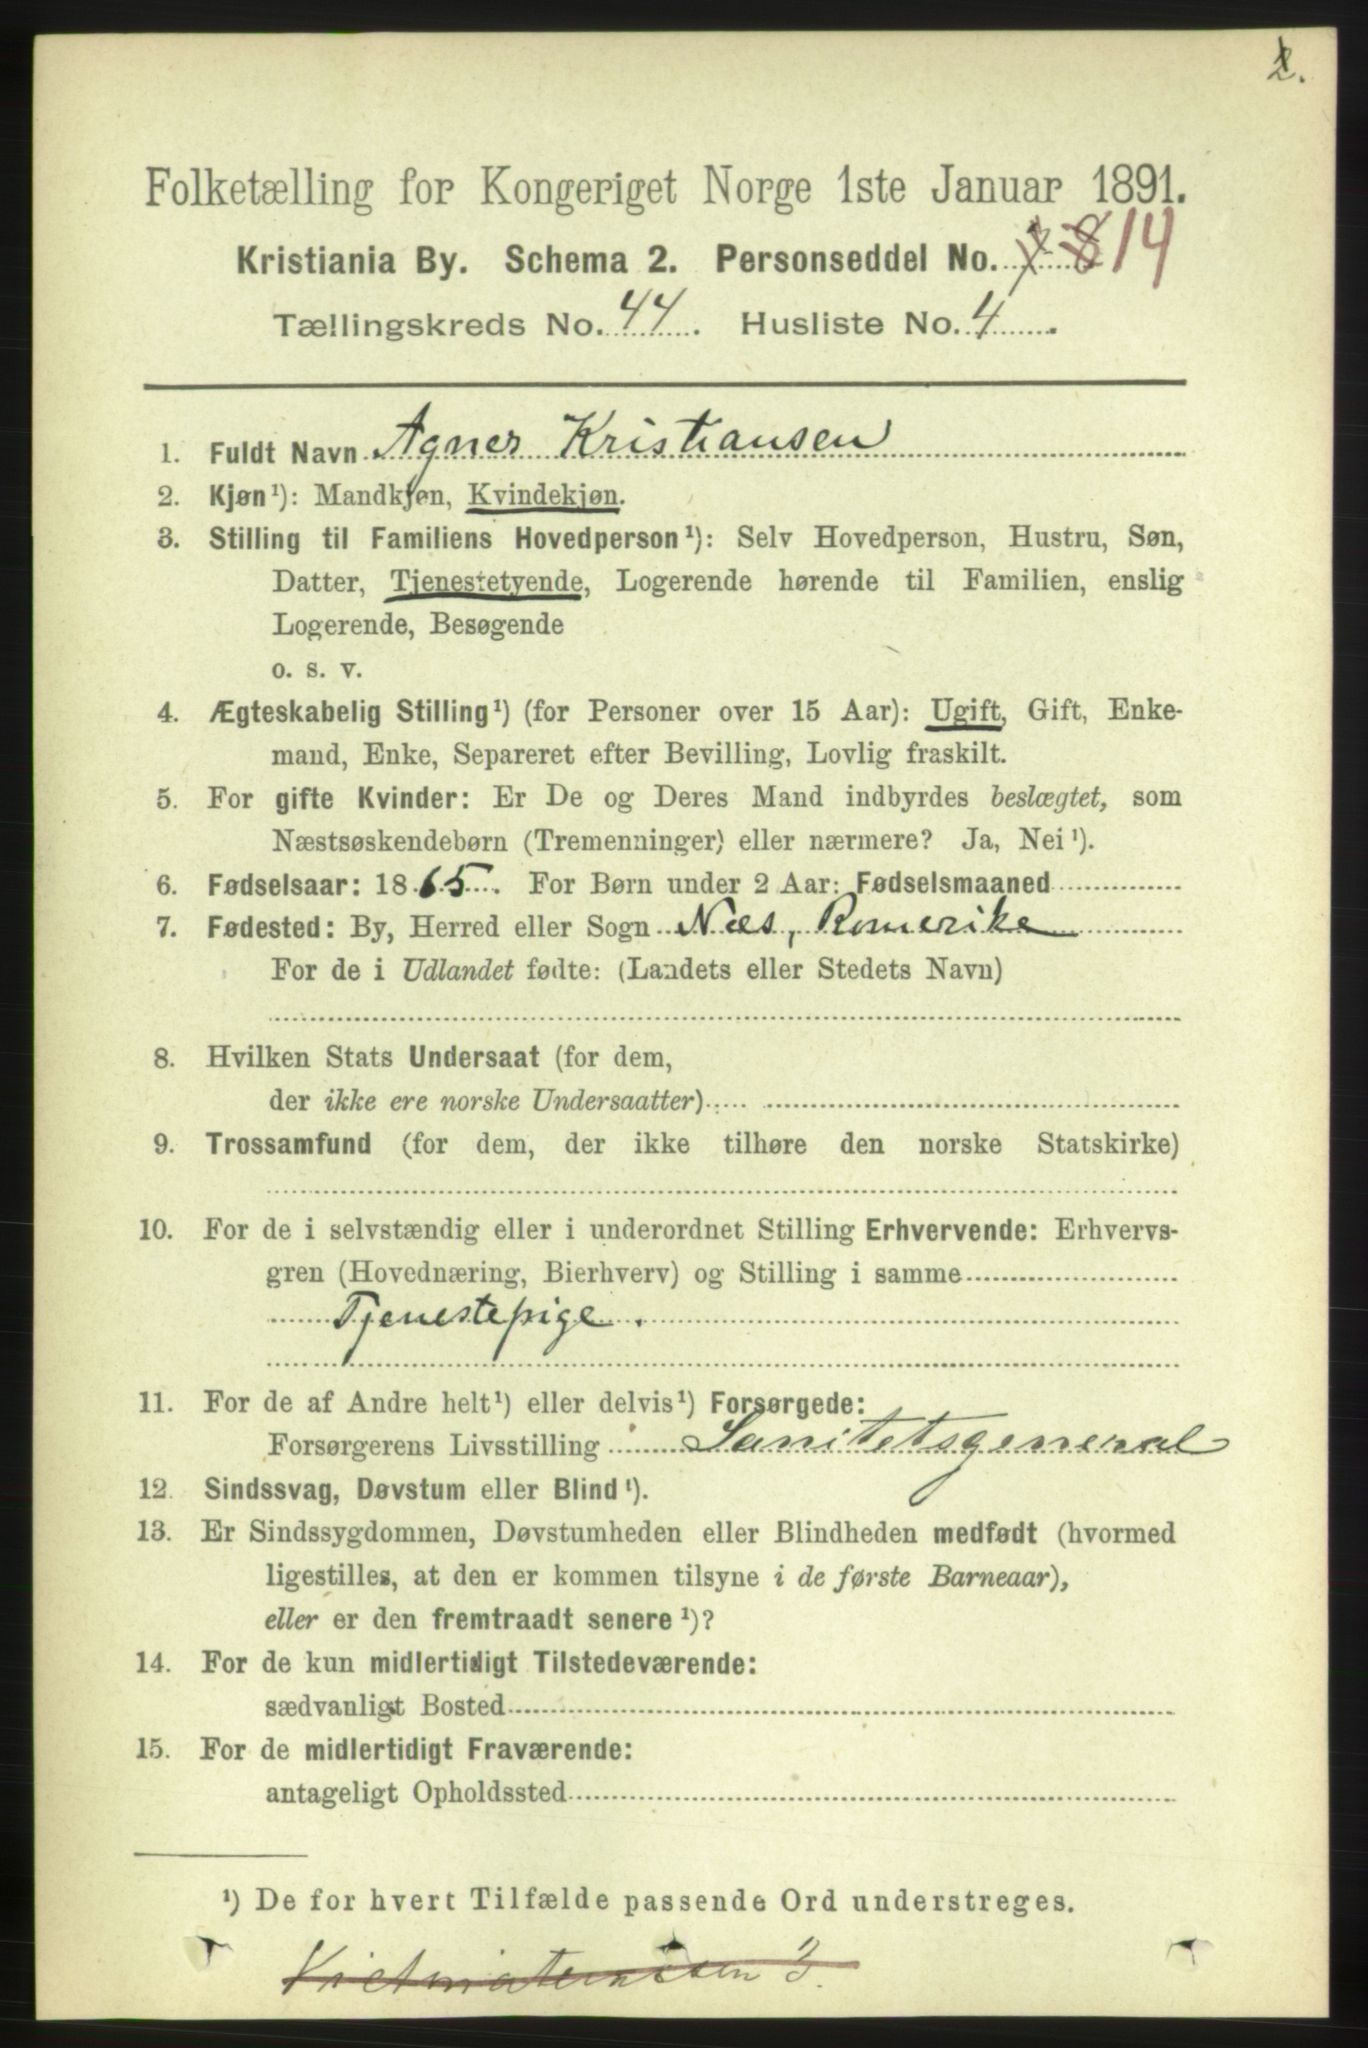 2.
Folketælling for Kongeriget Norge 1ste Januar 1891.
Kristiania By. Schema 2. Personseddel No. 8 14
Tællingskreds No. 44. Husliste No. 4.
1. Fuldt Navn Agnes Kristiansen
2. Kjøn¹): Mandkjøn, Kvindekjøn.
3. Stilling til Familiens Hovedperson¹): Selv Hovedperson, Hustru, Søn,
Datter, Tjenestetyende, Logerende hørende til Familien, enslig
Logerende, Besøgende
o. s. v.
4. Ægteskabelig Stilling¹) (for Personer over 15 Aar): Ugift, Gift, Enke-
mand, Enke, Separeret efter Bevilling, Lovlig fraskilt.
5. For gifte Kvinder: Er De og Deres Mand indbyrdes beslægtet, som
Næstsøskendebørn (Tremenninger) eller nærmere? Ja, Nei¹).
6. Fødselsaar: 1865. For Børn under 2 Aar: Fødselsmaaned
7. Fødested: By, Herred eller Sogn Næs, Romerike
For de i Udlandet fødte: (Landets eller Stedets Navn)
8. Hvilken Stats Undersaat (for dem,
der ikke ere norske Undersaatter)
9. Trossamfund (for dem, der ikke tilhøre den norske Statskirke)
10. For de i selvstændig eller i underordnet Stilling Erhvervende: Erhvervs-
gren (Hovednæring, Bierhverv) og Stilling i samme
Tjenestepige.
11. For de af Andre helt¹) eller delvis¹) Forsørgede:
Forsørgerens Livsstilling Sanitetsgeneral
12. Sindssvag, Døvstum eller Blind¹).
13. Er Sindssygdommen, Døvstumheden eller Blindheden medfødt (hvormed
ligestilles, at den er kommen tilsyne i de første Barneaar),
eller er den fremtraadt senere¹)?
14. For de kun midlertidigt Tilstedeværende:
sædvanligt Bosted
15. For de midlertidigt Fraværende:
antageligt Opholdssted
¹) De for hvert Tilfælde passende Ord understreges.